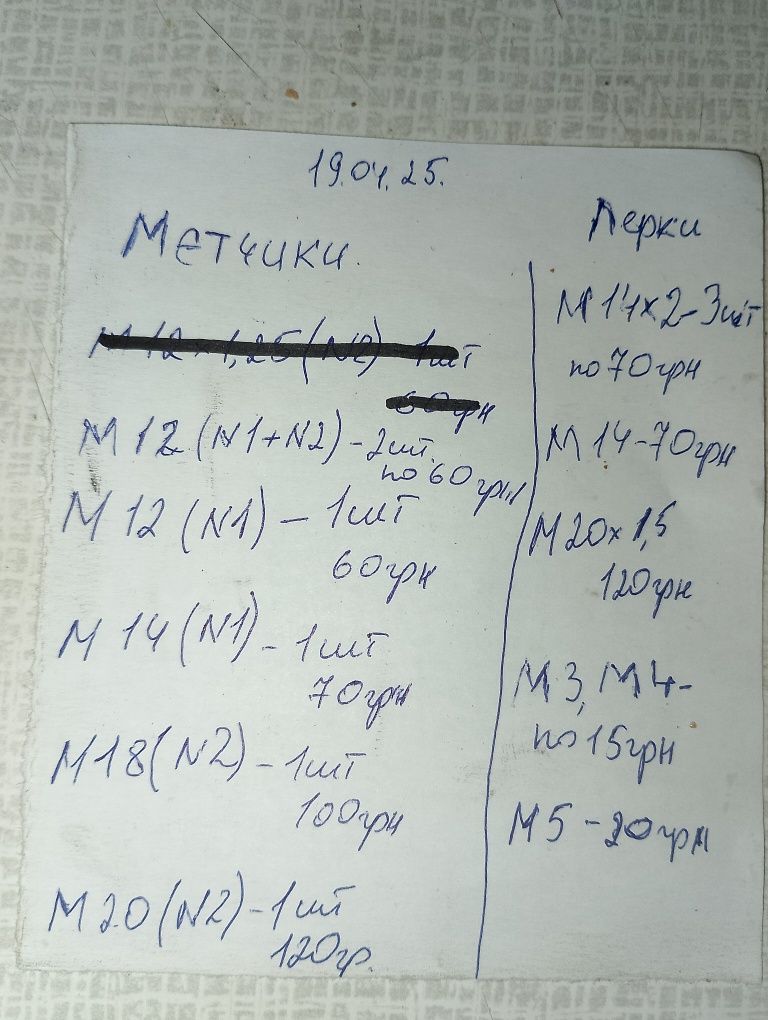 19.04.25.
Метчики.
М12×1,25(N2) 1шт
60грн
М12(N1+N2)-2шт.
по 60грн
М12(N1)-1шт
60грн
М14(N1)-1шт
70грн
М18(N2)-1шт
100грн
М20(N2)-1шт
120гр.
Лерки
М14×2-3шт
по 70грн
М14-70грн
М20×1,5
120грн
М3, М4-
по 15грн
М5-20грн